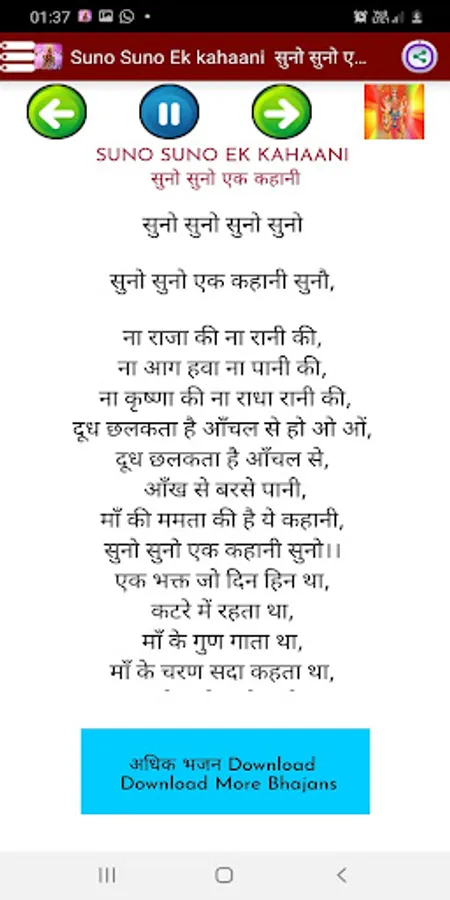 01:37
Suno Suno Ek kahaani सुनो सुनो ए...
SUNO SUNO EK KAHAANI
सुनो सुनो एक कहानी
सुनो सुनो सुनो सुनो
सुनो सुनो एक कहानी सुनौ,
ना राजा की ना रानी की,
ना आग हवा ना पानी की,
ना कृष्णा की ना राधा रानी की,
दूध छलकता है आँचल से हो ओ ओं,
दूध छलकता है आँचल से,
आँख से बरसे पानी,
माँ की ममता की है ये कहानी,
सुनो सुनो एक कहानी सुनो।।
एक भक्त जो दिन हिन था,
कटरे में रहता था,
माँ के गुण गाता था,
माँ के चरण सदा कहता था,
अधिक भजन Download
Download More Bhajans